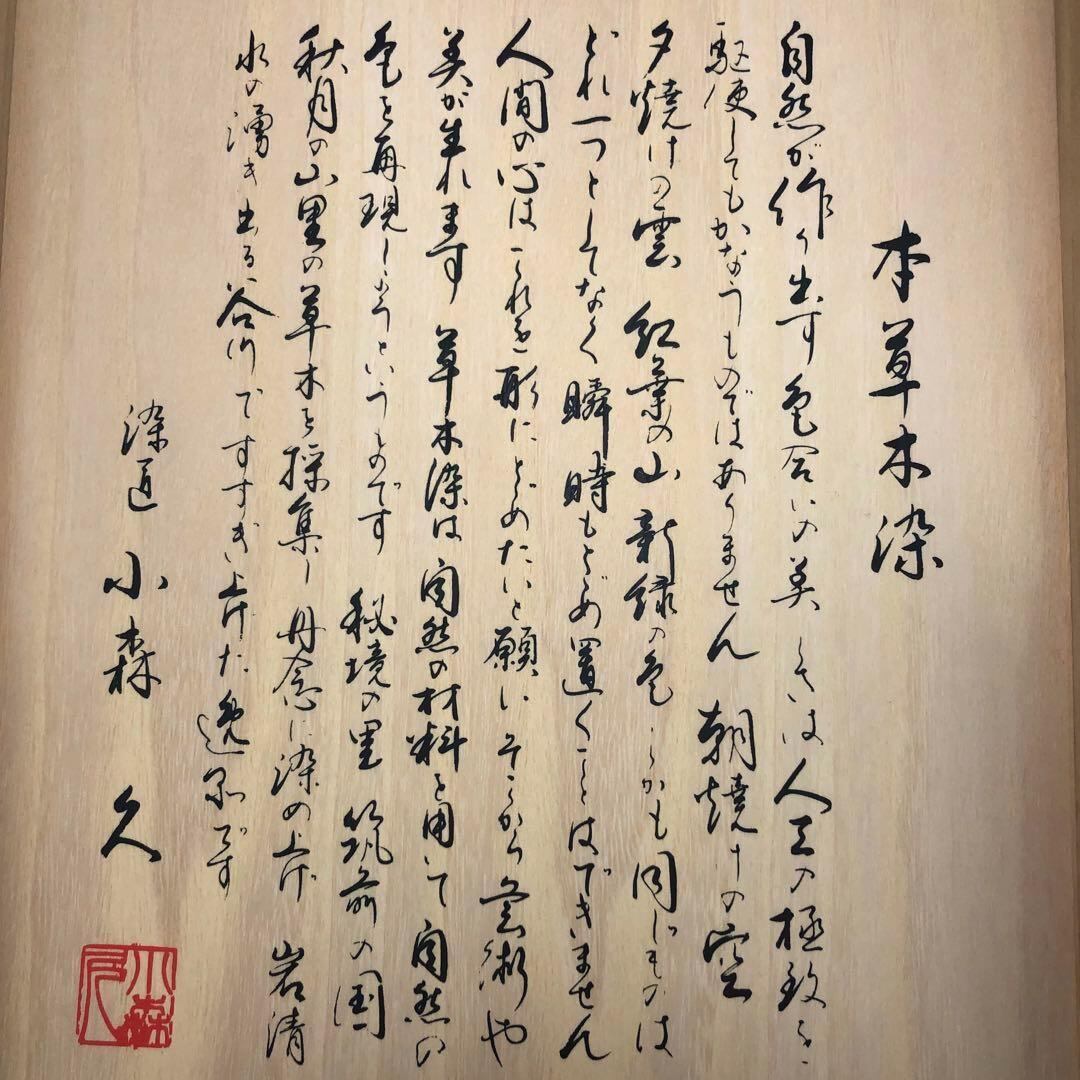 本草木染
自然が作り出す色合いの美しさは人工の極致を
駆使してもかなうものではありません 朝焼けの空
夕焼けの雲 紅葉の山 新緑の色しかも同じものは
どれ一つとしてなく瞬時もとどめ置くことはできません
人間の心はこれを形にとどめたいと願いそこから芸術や
美が生れます 草木染は自然の材料を用いて自然の
色を再現しようというものです 秘境の里 筑前の国
秋月の山里の草木を採集し丹念に染め上げ 岩清
水の湧き出る谷川ですすぎ上げた逸品です
染匠 小森 久